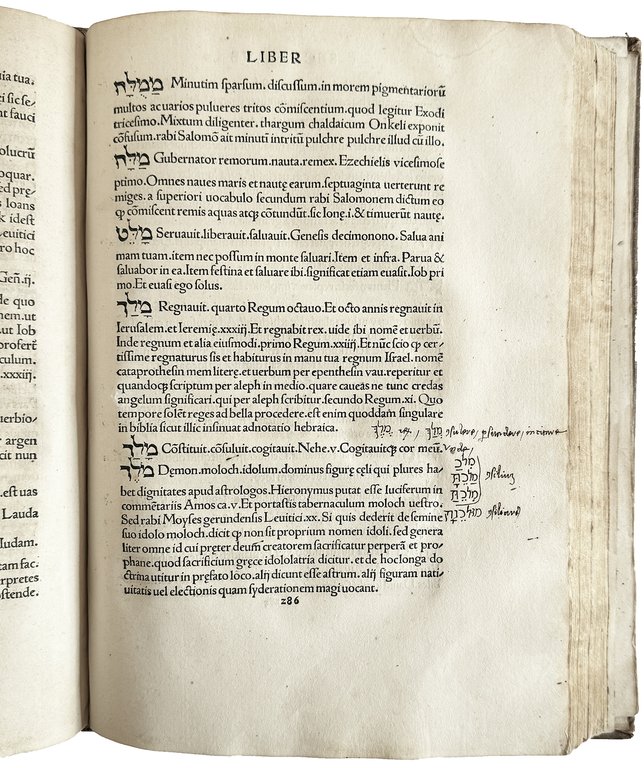 ia tua.
ei sic se/
nt fauci
olucrũ
oquar.
ed pre/
s Ioans
k idest
euitici
ro hoc
Geñ.ij.
de quo
nem.ut
ut Iob
profert
culum.
.xxxiij.
uerbio/
r argen
cit nun
.est uas
Lauda
Iudam.
tam fac.
erpretes
ostende.
LIBER
Minutim sparsum. discussum. in morem pigmentariorũ
multos ac uarios pulueres tritos cõmiscentium. quod legitur Exodi
tricesimo. Mixtum diligenter. thargum chaldaicum Onkeli exponit
cõfusum. rabi Salomõ ait minutĩ intritũ pulchre pulchre illud cũ illo.
מַלָּח Gubernator remorum. nauta. remex. Ezechielis uicesimose
ptimo. Omnes naues maris et nautę earum. septuaginta uerterunt re
miges. a superiori uocabulo secundum rabi Salomonem dictum eo
ꝙ cõmiscent remis aquas atqꝫ cõtundũt. sic Ionę.i. & timuerũt nautę.
מָלַט Seruauit. liberauit. saluauit. Genesis decimonono. Salua ani
mam tuam. item nec possum in monte saluari. Item et infra. Parua &
saluabor in ea. Item festina et saluare ibi. significat etiam euasit. Iob pri
mo. Et euasi ego solus.
מָלַךְ Regnauit. quarto Regum octauo. Et octo annis regnauit in
Ierusalem. et Ieremię.xxxiiij. Et regnabit rex. uide ibi nomẽ et uerbũ.
Inde regnum et alia eiusmodi. primo Regum. xxiiij. Et nũc scio ꝙ cer/
tissime regnaturus sis et habiturus in manu tua regnum Israel. nomẽ
cataprothesin mem literę. et uerbum per epenthesin vau. reperitur et
quandoqꝫ scriptum per aleph in medio. quare caueas ne tunc credas
angelum significari. qui per aleph scribitur. secundo Regum.xi. Quo
tempore solẽt reges ad bella procedere. est enim quoddam singulare
in biblia sicut illic insinuat adnotatio hebraica.
מָלַךְ Cõstituit. cõsuluit. cogitauit. Nehe.v. Cogitauitqꝫ cor meũ.
מֹלֶךְ Dęmon. moloch. idolum. dominus figurę cęli qui plures ha/
bet dignitates apud astrologos. Hieronymus putat esse luciferum in
commẽtariis Amos ca.v. Et portastis tabernaculum moloch uestro.
Sed rabi Moyses gerundensis Leuitici.xx. Si quis dederit de semine
suo idolo moloch. dicit ꝙ non sit proprium nomen idoli. sed genera
liter omne id cui pręter deum creatorem sacrificatur perperã et pro/
phane. quod sacrificium gręce idololatria dicitur. et de hoc longa do
ctrina utitur in pręfato loco. alij dicunt esse astrum. alij figuram nati/
uitatis uel electionis quam syderationem magi uocant.
286
מֶלֶךְ rex,